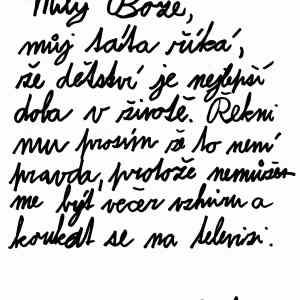 Milý Bože,
můj táta říká,
že dětství je nejlepší
doba v životě. Řekni
mu prosím že to není
pravda, protože nemůžem
me být večer vzhůru a
koukat se na televisi.